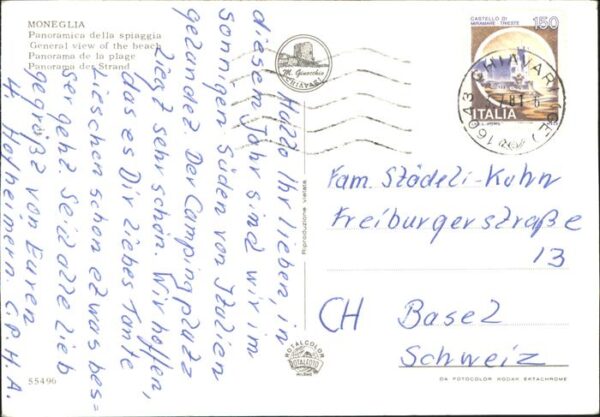 MONEGLIA
Panoramica della spiaggia
General view of the beach
Panorama de la plage
Panorama der Strand
Hallo Ihr lieben, in
diesem Jahr sind wir im
sonnigen Süden von Italien
gelandet. Der Campingplatz
liegt sehr schön. Wir hoffen,
das es Dir liebes Tante
Lieschen schon etwas bes=
ser geht. Seid alle lieb
gegrüßt von Euren
H. Hofhemern. C.P.H.A.
55496
M. Genocchio
CHIAVARI
Riproduzione vietata
ROTALCOLOR
ROTALFOTO
MILANO
CASTELLO DI
MIRAMARE TRIESTE
150
ITALIA
16043 CHIAVARI (GE)
Fam. Städeli-Kuhn
Freiburgerstraße
13
CH Basel
Schweiz
DA FOTOCOLOR KODAK EKTACHROME